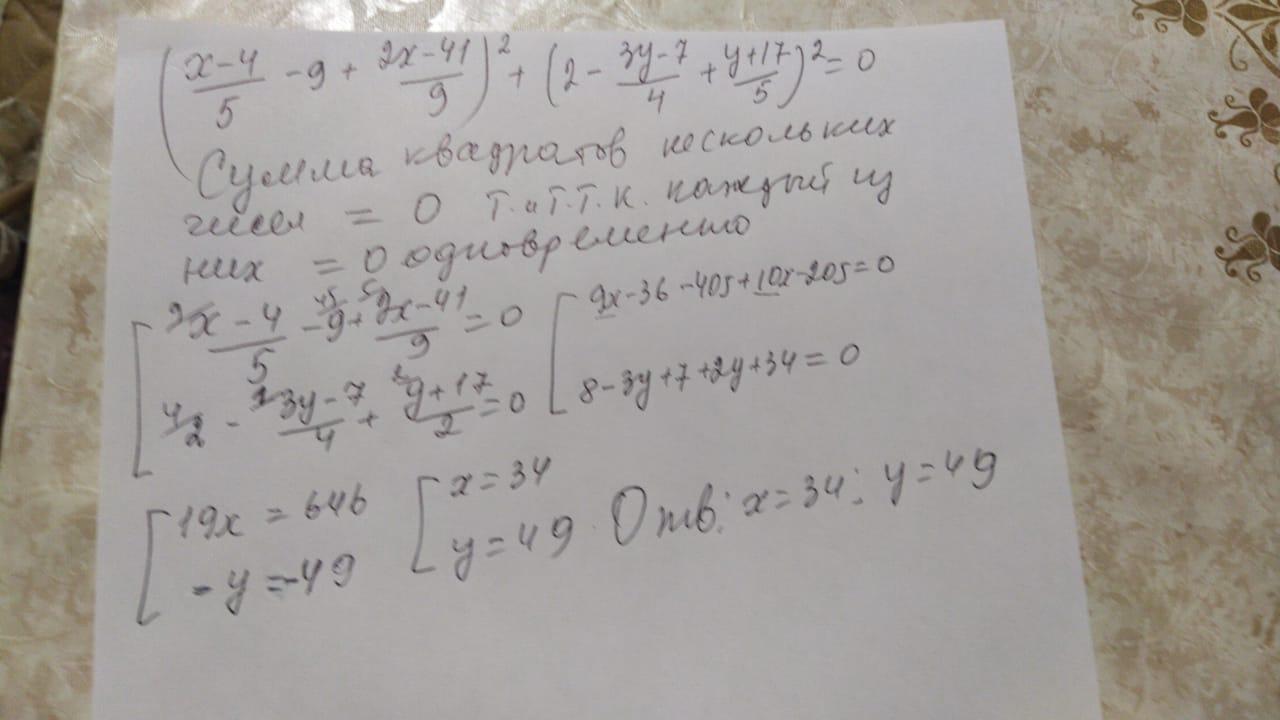 (x-4/5 - 9 + 2x-41/9)² + (2 - 3y-7/4 + y+17/5)² = 0
Сумма квадратов нескольких
чисел = 0 т.и т.т.к. каждый из
них = 0 одновременно
[ x-4/5 - 9 + 2x-41/9 = 0 [ 9x-36-405+10x-205=0
2 - 3y-7/4 + y+17/2 = 0 8-3y+7+2y+34=0
[ 19x = 646 [ x=34
-y=-49 y=49. Отв: x=34; y=49